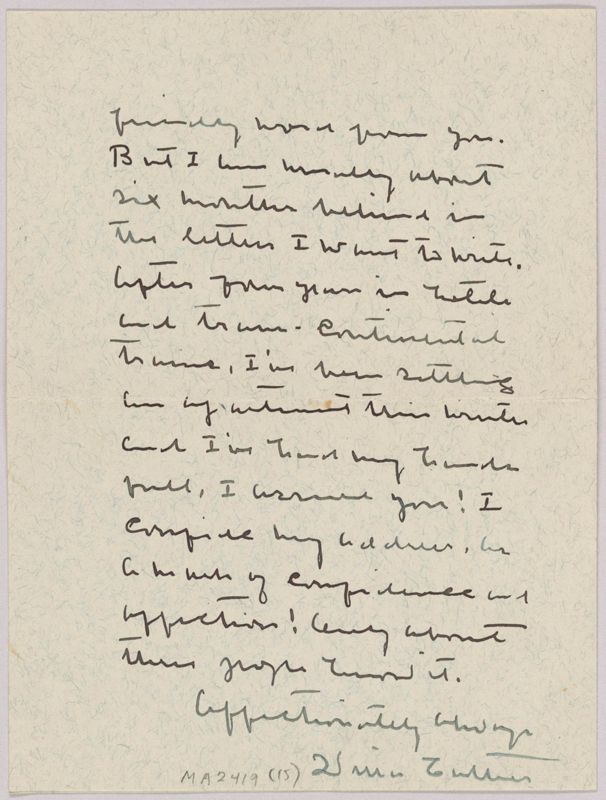 friendly word from you.
But I am usually about
six months behind in
the letters I want to write.
After four years in hotels
and trans-continental
trains, I've been settling
an apartment this winter
and I've had my hands
full, I assure you! I
confide my address, as
a mark of confidence and
affection! Only about
three people know it.
Affectionately always
Willa Cather
MA2419 (15)